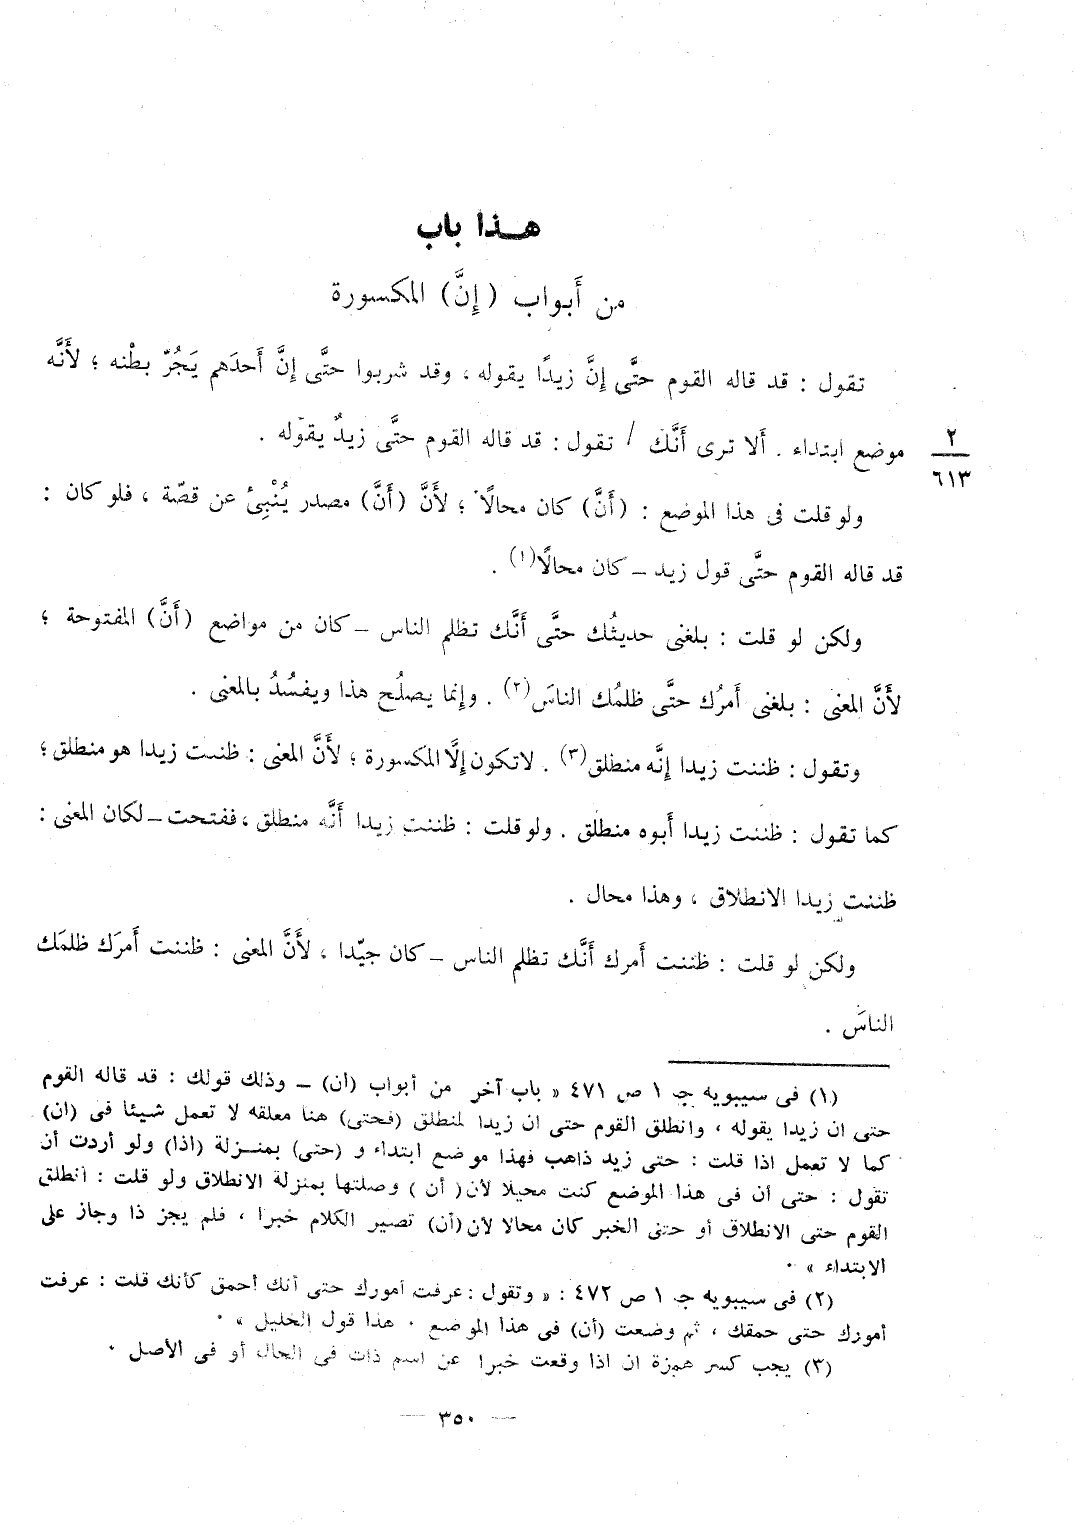 هــذا باب
من أَبواب (إِنَّ) المكسورة
تقول : قد قاله القوم حتَّى إِنَّ زيدًا يقوله ، وقد شربوا حتَّى إِنَّ أَحدَهم يَجُرّ بطْنه ؛ لأَنَّه
موضع ابتداء . أَلا ترى أَنَّك / تقول : قد قاله القوم حتَّى زيدٌ يقوله .
٢
٦١٣
ولو قلت فى هذا الموضع : (أَنَّ) كان محالًا ؛ لأَنَّ (أَنَّ) مصدر يُنْبِئُ عن قصّة ، فلو كان :
قد قاله القوم حتَّى قول زيد – كان محالًا(١) .
ولكن لو قلت : بلغنى حديثُك حتَّى أَنَّك تظلم الناس – كان من مواضع (أَنَّ) المفتوحة ؛
لأَنَّ المعنى : بلغنى أَمرُك حتَّى ظلمُك الناسَ(٢) . وإنما يصلُح هذا ويفسُدُ بالمعنى .
وتقول : ظننت زيدا إِنَّه منطلق(٣) . لاتكون إِلَّا المكسورة ؛ لأَنَّ المعنى : ظننت زيدا هو منطلق ؛
كما تقول : ظننت زيدا أَبوه منطلق . ولو قلت : ظننت زيدا أَنَّه منطلق ، ففتحت – لكان المعنى :
ظننت زيدا الانطلاق ، وهذا محال .
ولكن لو قلت : ظننت أَمرك أَنَّك تظلم الناس – كان جيّدا ، لأَنَّ المعنى : ظننت أَمرَك ظلمَك
الناسَ .
(١) فى سيبويه جـ ١ ص ٤٧١ « باب آخر من أبواب (أن) – وذلك قولك : قد قاله القوم
حتى ان زيدا يقوله ، وانطلق القوم حتى ان زيدا لمنطلق (فحتى) هنا معلقه لا تعمل شيئا فى (ان)
كما لا تعمل اذا قلت : حتى زيد ذاهب فهذا موضع ابتداء و (حتى) بمنــزلة (اذا) ولو أردت أن
تقول : حتى أن فى هذا الموضع كنت محيلا لأن ( أن ) وصلتها بمنزلة الانطلاق ولو قلت : انطلق
القوم حتى الانطلاق أو حتى الخبر كان محالا لان (أن) تصير الكلام خبرا ، فلم يجز ذا وجاز على
الابتداء » .
(٢) فى سيبويه جـ ١ ص ٤٧٢ : « وتقول : عرفت أمورك حتى أنك أحمق كأنك قلت : عرفت
أمورك حتى حمقك ، ثم وضعت (أن) فى هذا الموضع . هذا قول الخليل » .
(٣) يجب كسر همزة ان اذا وقعت خبرا عن اسم ذات فى الحال أو فى الأصل .
— ٣٥٠ —